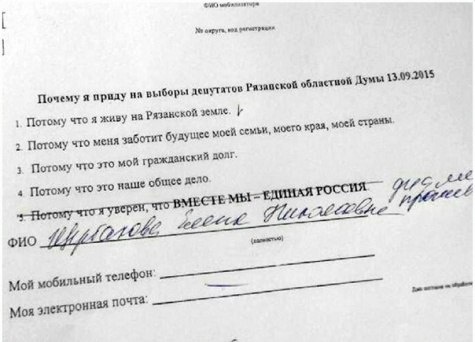 ФИО мобилизатора
№ округа, код регистрации
Почему я приду на выборы депутатов Рязанской областной Думы 13.09.2015
1. Потому что я живу на Рязанской земле.
2. Потому что меня заботит будущее моей семьи, моего края, моей страны.
3. Потому что это мой гражданский долг.
4. Потому что это наше общее дело.
5. Потому что я уверен, что ВМЕСТЕ МЫ – ЕДИНАЯ РОССИЯ
ФИО Щербакова Елена Николаевна
(полностью)
Мой мобильный телефон:
Моя электронная почта: